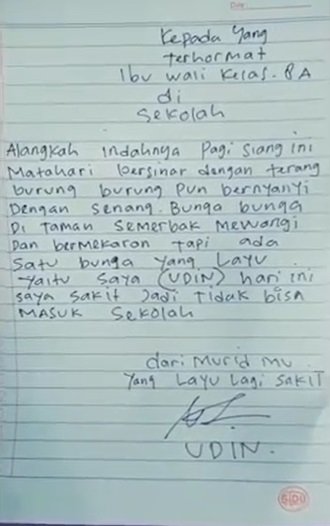 Date
Kepada Yang
terhormat
Ibu wali Kelas. 8A
di
Sekolah
Alangkah indahnya Pagi Siang ini
Matahari bersinar dengan terang
burung burung pun bernyanyi
Dengan senang. Bunga bunga
Di taman semerbak Mewangi
Dan bermekaran tapi ada
Satu bunga yang Layu
yaitu saya (UDIN) hari ini
saya sakit Jadi Tidak bisa
MASUK Sekolah
dari Murid mu
Yang Layu Lagi SakiT
UDIN.
SIDU